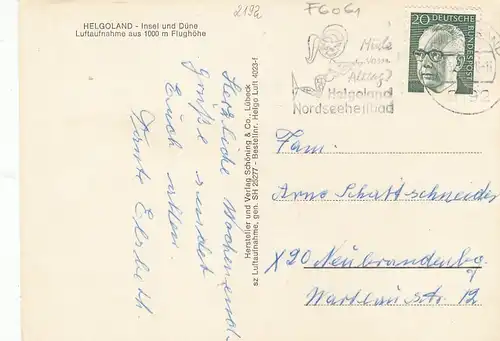 HELGOLAND - Insel und Düne
Luftaufnahme aus 1000 m Flughöhe
2192
F6061
20 DEUTSCHE
BUNDESPOST
Hilfe
vom
Alltag?
Helgoland
Nordseeheilbad
2192
Herzliche Wochenend-
Grüße sendet
Euch allen
Tante Elsbeth.
Hersteller und Verlag Schöning & Co., Lübeck
sz Luftaufnahme, gen. SH 25277 - Bestellnr. Helgo Luft 4023-f
Fam.
Arno Schattschneider
X20 Neubrandenburg
Warlaustr. 12